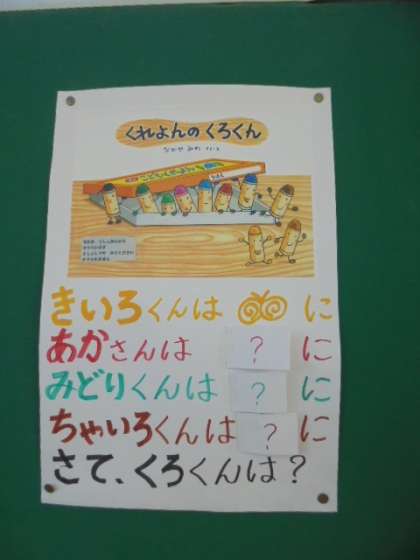 くれよんのくろくん
なかや みわ さく・え
きいろくんは に
あかさんは ? に
みどりくんは ? に
ちゃいろくんは ? に
さて、くろくんは?